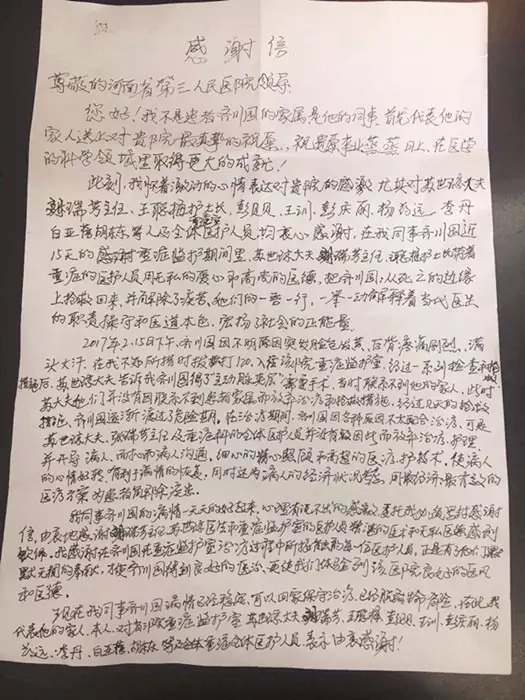 感谢信
尊敬的河南省第三人民医院领导:
您好!我不是患者齐川国的家属是他的同事 首先代表他的
家人送上对贵院最真挚的祝愿、祝贵院事业蒸蒸日上,在医学
的科学领域里取得更大的成就!
此刻,我怀着激动的心情表达对贵院的感激 尤其对苏世
瑞芳主任、王 护士长,彭贝贝、王训、彭庆丽、杨 远、李丹
白亚 胡栋、等人及全体医护人员均表衷心感谢,在我同事齐川国近
15天的 重症监护期间里,苏世 大夫 瑞芳主任、 护士长带着
重症的医护人员用无私的爱心和高尚的医德,把齐川国从死亡的边缘
上抢救回来,并解除了疾苦,她们的一言一行,一举一动 着当代医生
的职责操守和医道本色,宏扬了社会的正能量。
2017年2.15日下午,齐川国因不明原因突发脸色发黄、后背疼痛剧烈、满
头大汗,在我不知所措时拨打120,入住该院重症监护室,经过一系列检查和抢救
措施后,苏世 大夫告诉我齐川国得了"主动脉夹层"需要手术,当时联系不到他的家人,此时
苏大夫她们并没有因联系不到患者家属而放弃治疗和抢救措施,经过几天的抢救
措施,齐川国逐渐渡过了危险期。在治疗期间,齐川国因各种原因不太配合治疗,可是
苏世 大夫, 瑞芳主任及重症科的全体医护人员并没有因此而放弃治疗,护理
并开导病人,而 和病人沟通,细心的精心照顾和高超的医疗、护技术,使病人
的心情好转,有利于病情的恢复,同时还为病人的经济状况考虑,用最经济、最有意义的
医疗方案为患者 除疾患。
我同事齐川国的病情一天天的好起来,心理有说不出的感激,委托我为此写封感谢
信,由衷地感谢 瑞芳主任、苏世 医生和重症监护室的医护人员精湛的医术和无私医德感到
敬佩。我感谢在齐川国在重症监护室治疗过程中所接触的每一位医护人员,正是有了他们 默
默无闻的奉献,才使齐川国得到良好的医治,更使我们体验到该医院良好的医风
和医德。
现在我同事齐川国病情已经稳定,可以回家保守治疗,已经脱离 危险,在此,我
代表他的家人、本人,对 院重症监护室 苏世 大夫 瑞芳、王 、彭贝贝、王训、彭庆丽、杨
远、李丹、白亚 、胡栋、等及全体重症全体医护人员、表示由衷感谢!